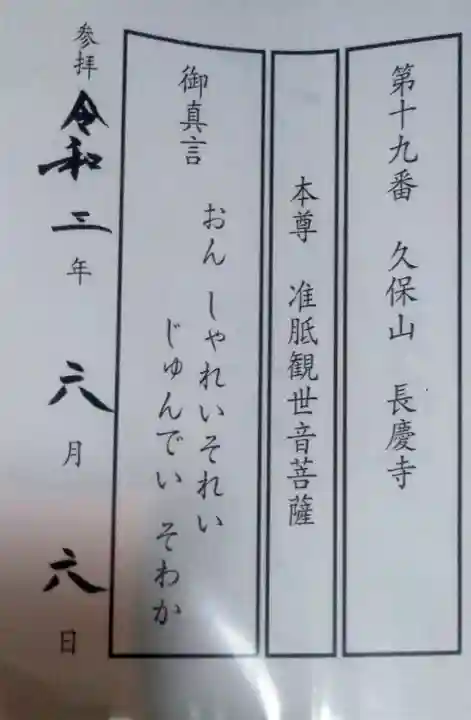 第十九番 久保山 長慶寺
本尊 准胝観世音菩薩
御真言 おん しゃれいそれい
じゅんでい そわか
参拝 令和三年 六月 六日